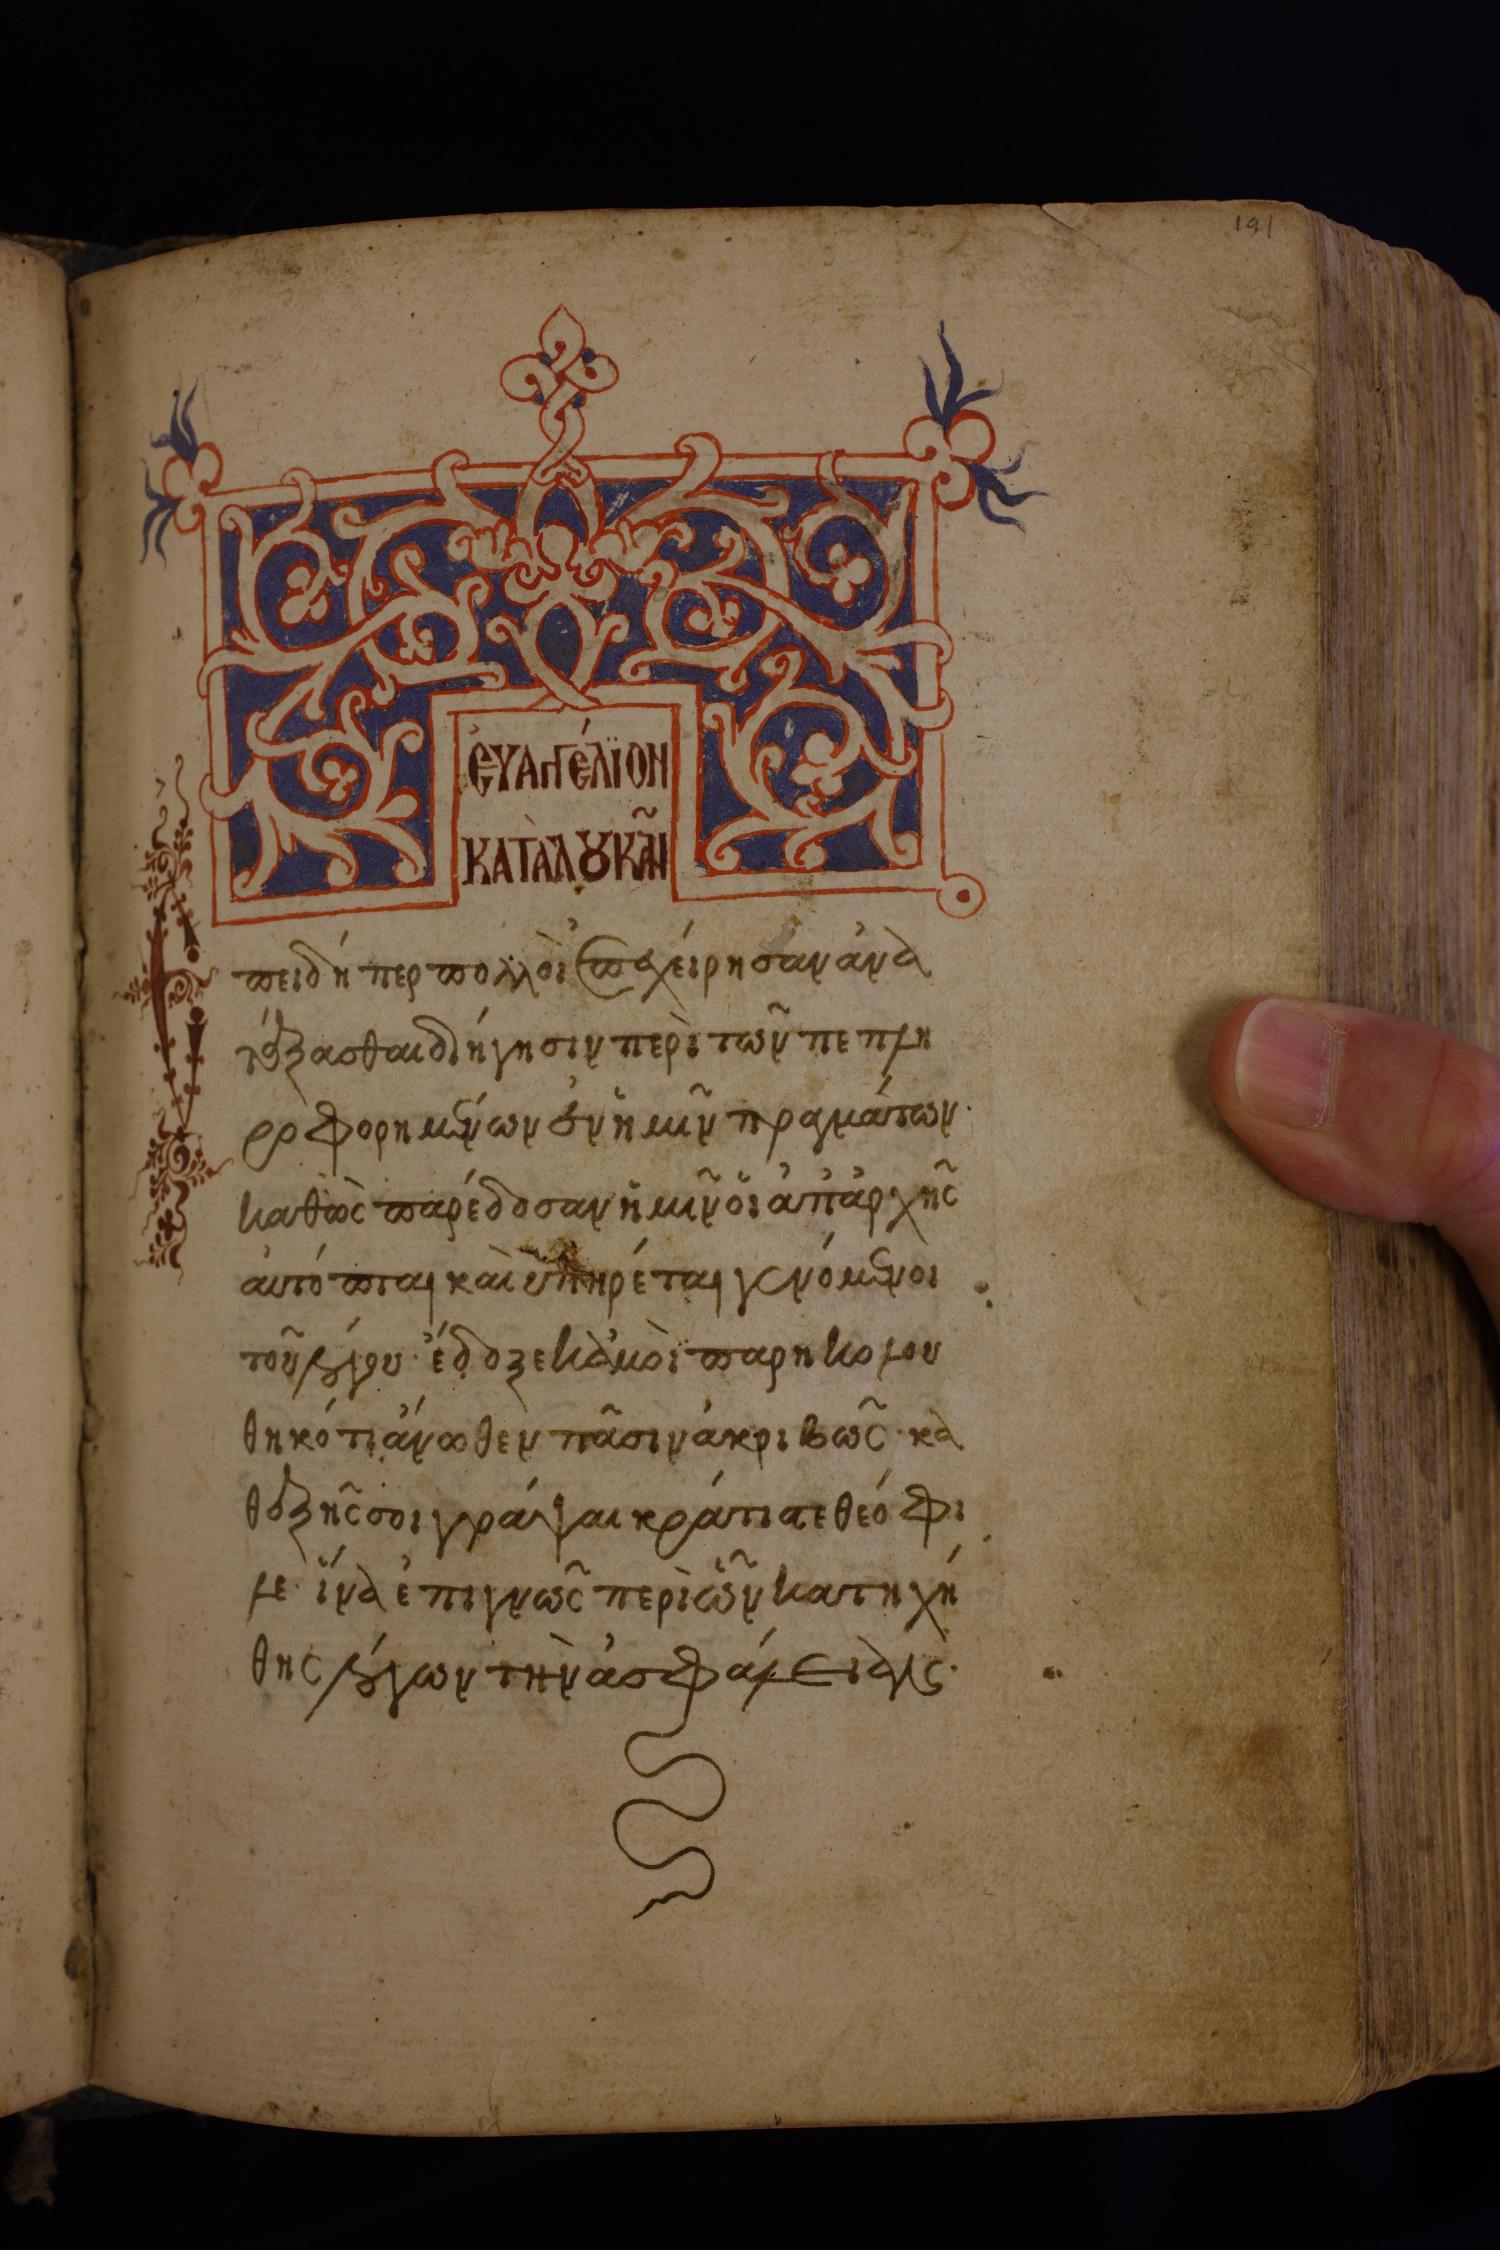 191
ἐυαγγέλϊον
κατὰ λουκᾶν
Ἐπειδή περ πολλοὶ ἐπεχείρησαν ἀνα
τάξασθαι διήγησιν περὶ τῶν πεπλη
ροφορημένων ἐν ἡμῖν πραγμάτων·
καθὼς παρέδοσαν ἡμῖν ὁι ἀπ' ἀρχῆς
αυτόπται καὶ ὑπηρέται γενόμενοι
τοῦ λόγου· ἔδοξε κἀμοὶ παρηκολου
θηκότι ἄνωθεν πᾶσιν ἀκριβῶς· κα
θεξῆς σοι γράψαι κράτιστε θεόφι
λε· ἵνα ἐπιγνῶς περὶ ὧν κατηχή
θης λόγων τὴν ἀσφάλειαν·